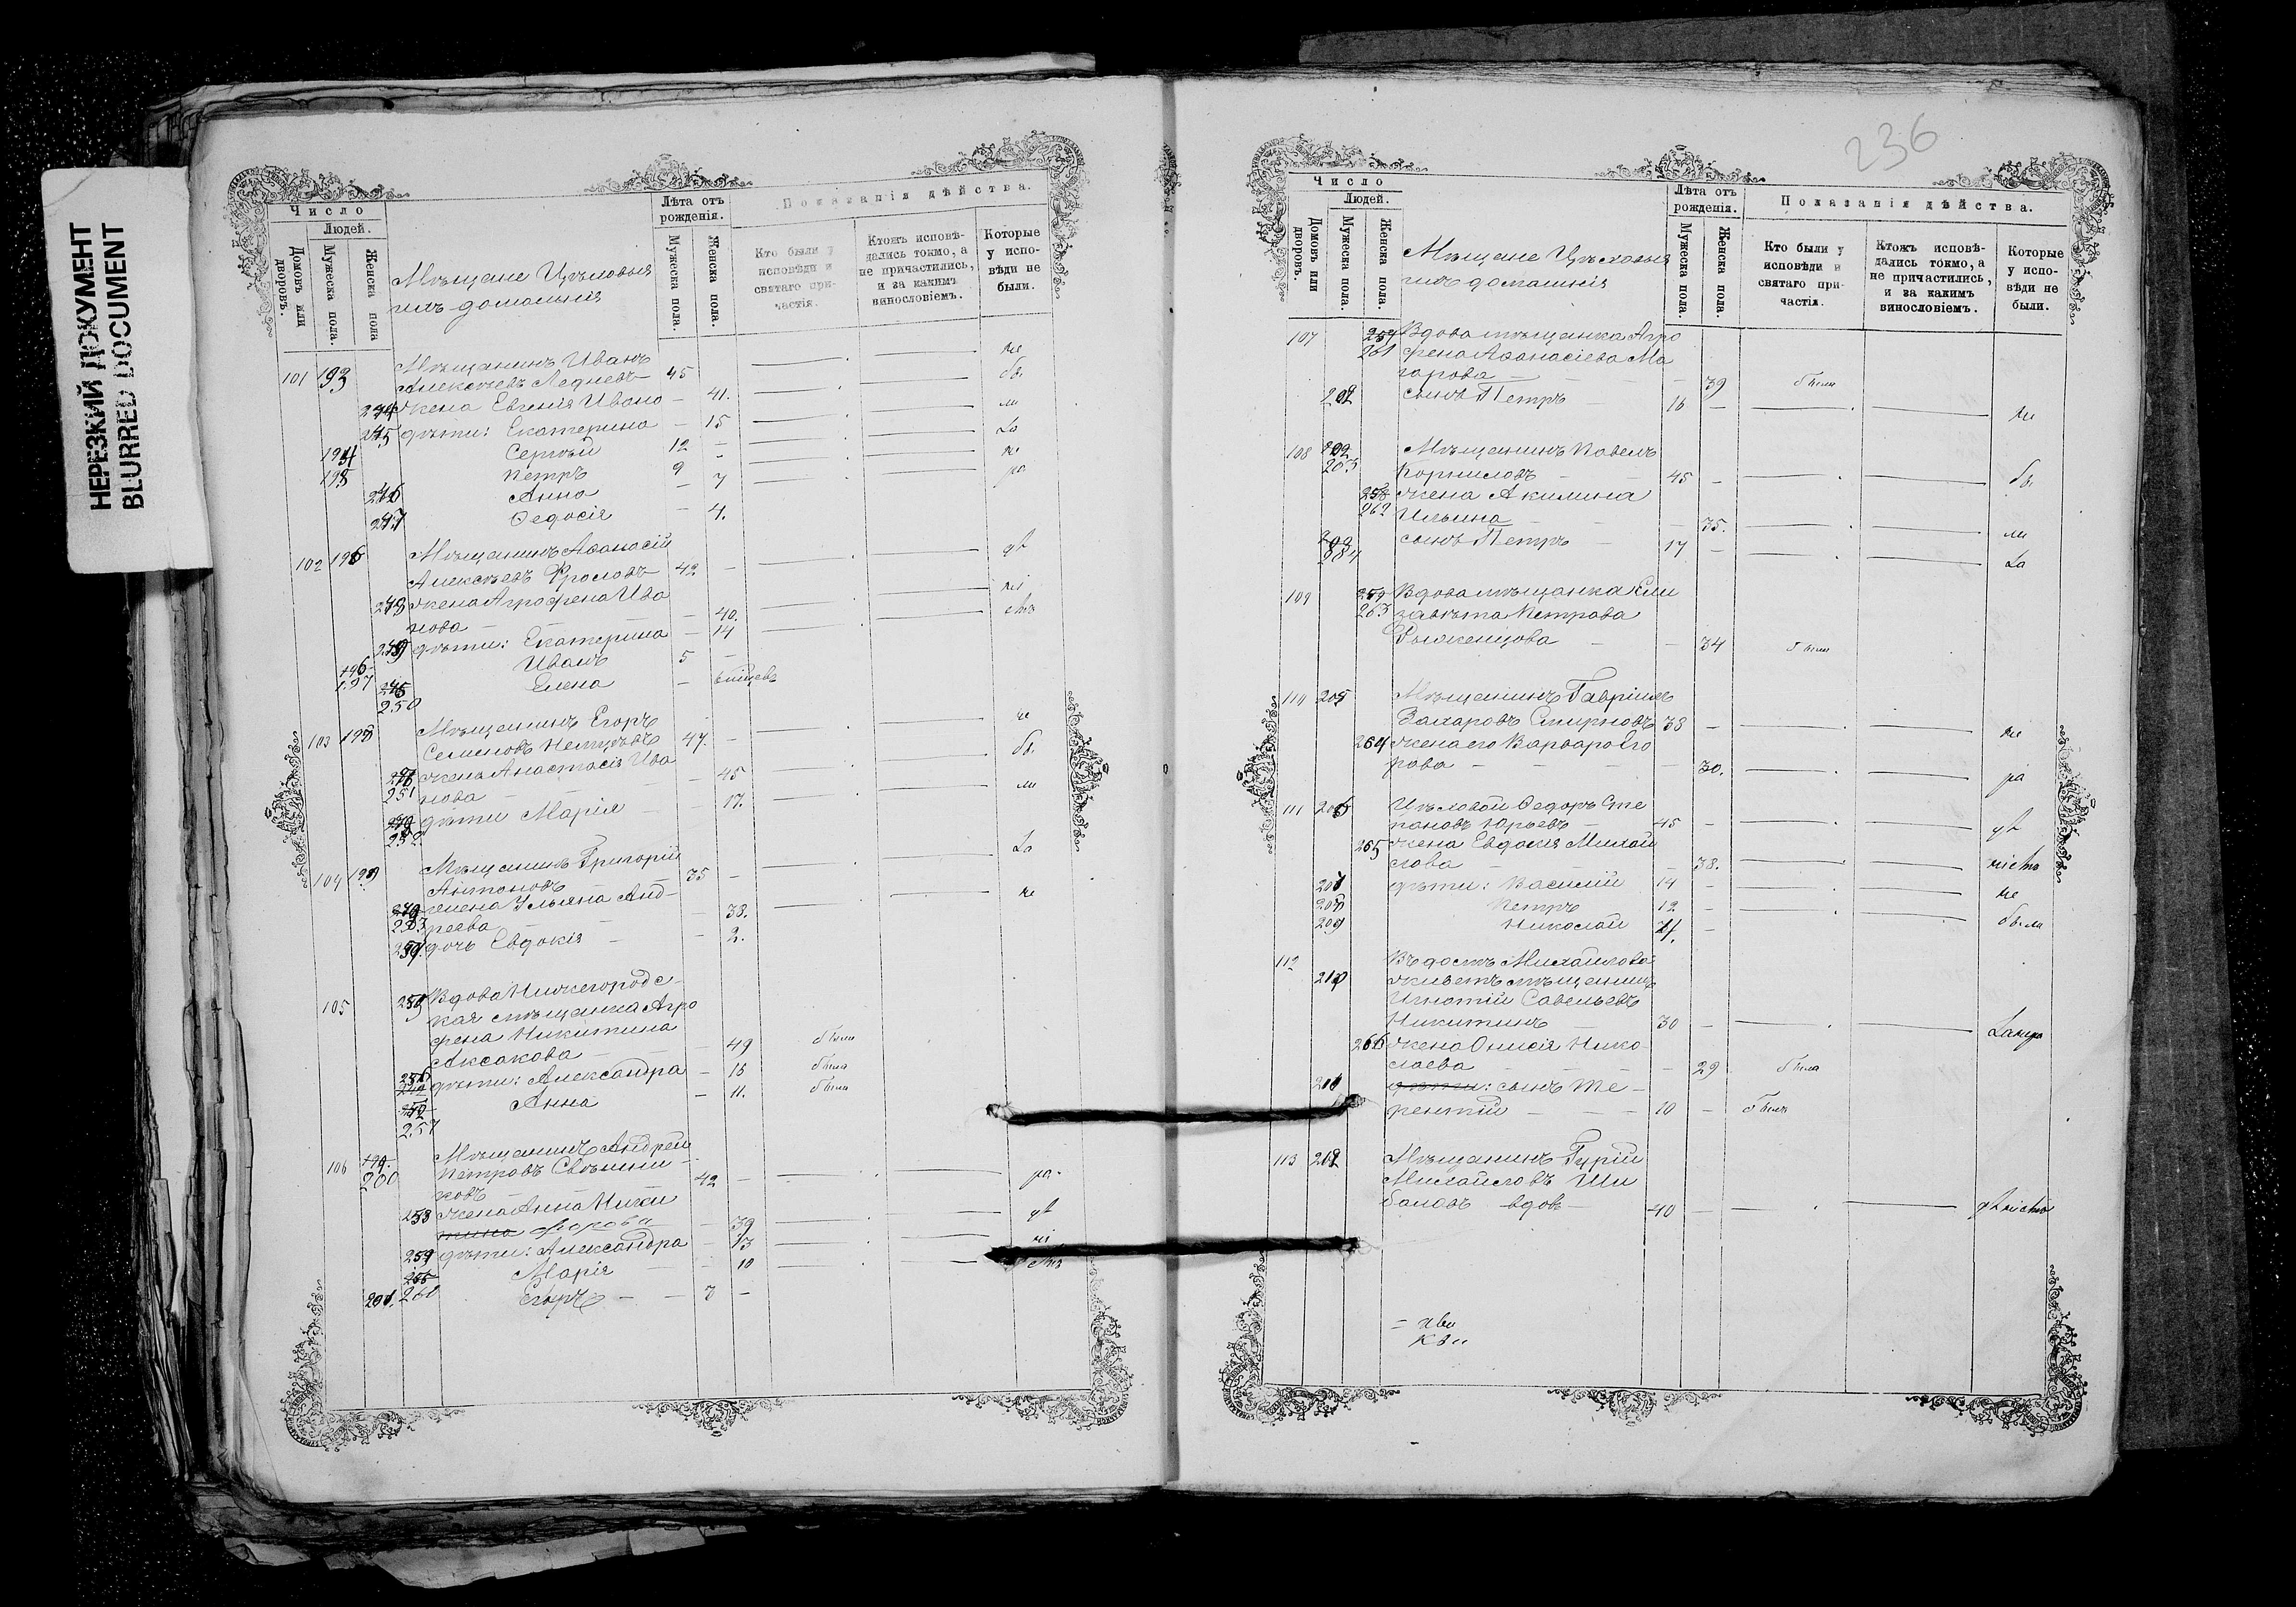 НЕРЕЗКИЙ ДОКУМЕНТ
BLURRED DOCUMENT
Число
Людей.
Домовъ или дворовъ.
Мужеска пола.
Женска пола
Мѣщане Цеховыя
ихъ домашнія
Лѣта отъ рожденія.
Мужеска пола.
Женска пола.
Показанія дѣйства.
Кто были у исповѣди и святаго причастія.
Ктожъ исповѣдались токмо, а не причастились, и за какимъ винословіемъ.
Которые у исповѣди не были.
101 193 Мѣщанинъ Иванъ
Алексѣевъ Ледневъ 45 не
жена Евгенія Ивано 41. бы
245 дѣти: Екатерина 15 ли
194 Сергѣй 12 За
195 Петръ 9 не
246 Анна 7 ра
247 Ѳедосія 4.
102 196 Мѣщанинъ Аѳанасій
Алексѣевъ Фроловъ 42
248 жена Агрофена Ива
нова 40.
249 дѣти: Екатерина 14
196 197 Иванъ 5
250 Елена
103 198 Мѣщанинъ Егоръ
Семеновъ Немцовъ 47. не
251 жена Анастасія Ива
нова 45 бы
252 дѣти Марія 17. ли
104 199 Мѣщанинъ Григорій
Антоновъ 35 За
253 жена Ульяна Анд
реева 38. не
254 дочь Евдокія 2.
105 255 Вдова Нижегородс
кая мѣщанка Агро
фена Никитина
Аксакова 49 была
256 дѣти: Александра 15 была
257 Анна 11. была
106 200 Мѣщанинъ Андрей
Петровъ Свѣшни
ковъ 42 ра
258 жена Анна Ники
тина 39
259 дѣти: Александра 13
Марія 10
201. 260 Егоръ 3
236
Число
Людей.
Домовъ или дворовъ.
Мужеска пола.
Женска пола.
Мѣщане Цеховыя
ихъ домашнія
Лѣта отъ рожденія.
Мужеска пола.
Женска пола.
Показанія дѣйства.
Кто были у исповѣди и святаго причастія.
Ктожъ исповѣдались токмо, а не причастились, и за какимъ винословіемъ.
Которые у исповѣди не были.
107 261 Вдова мѣщанка Агро
фена Аѳанасіева Ма
карова 39 была
202 сынъ Петръ 16 не
108 203 Мѣщанинъ Павелъ
Корниловъ 45 бы
262 жена Акилина
Ильина 35. ли
204 сынъ Петръ 17 За
109 263 Вдова мѣщанка Ели
завѣта Петрова
34 была
110 205 Мѣщанинъ Гавріилъ
Захаровъ Смирновъ 38 не
264 жена его Варвара Его
рова 30. ра
111 206 Цеховой Ѳедоръ Сте
пановъ Юрьевъ 45
265 жена Евдокія Михай
лова 38.
207 дѣти: Василій 14 не
208 Петръ 12
209 Николай были
112 Въ домѣ Михайлова
210 живетъ мѣщанинъ
Игнатій Савельевъ
Никитинъ 30
266 жена Онисія Нико
лаева 29 была
211 дѣти: сынъ Те
рентій 10 былъ
113 212 Мѣщанинъ Гурій
Михайловъ Ши
баловъ вдов 40